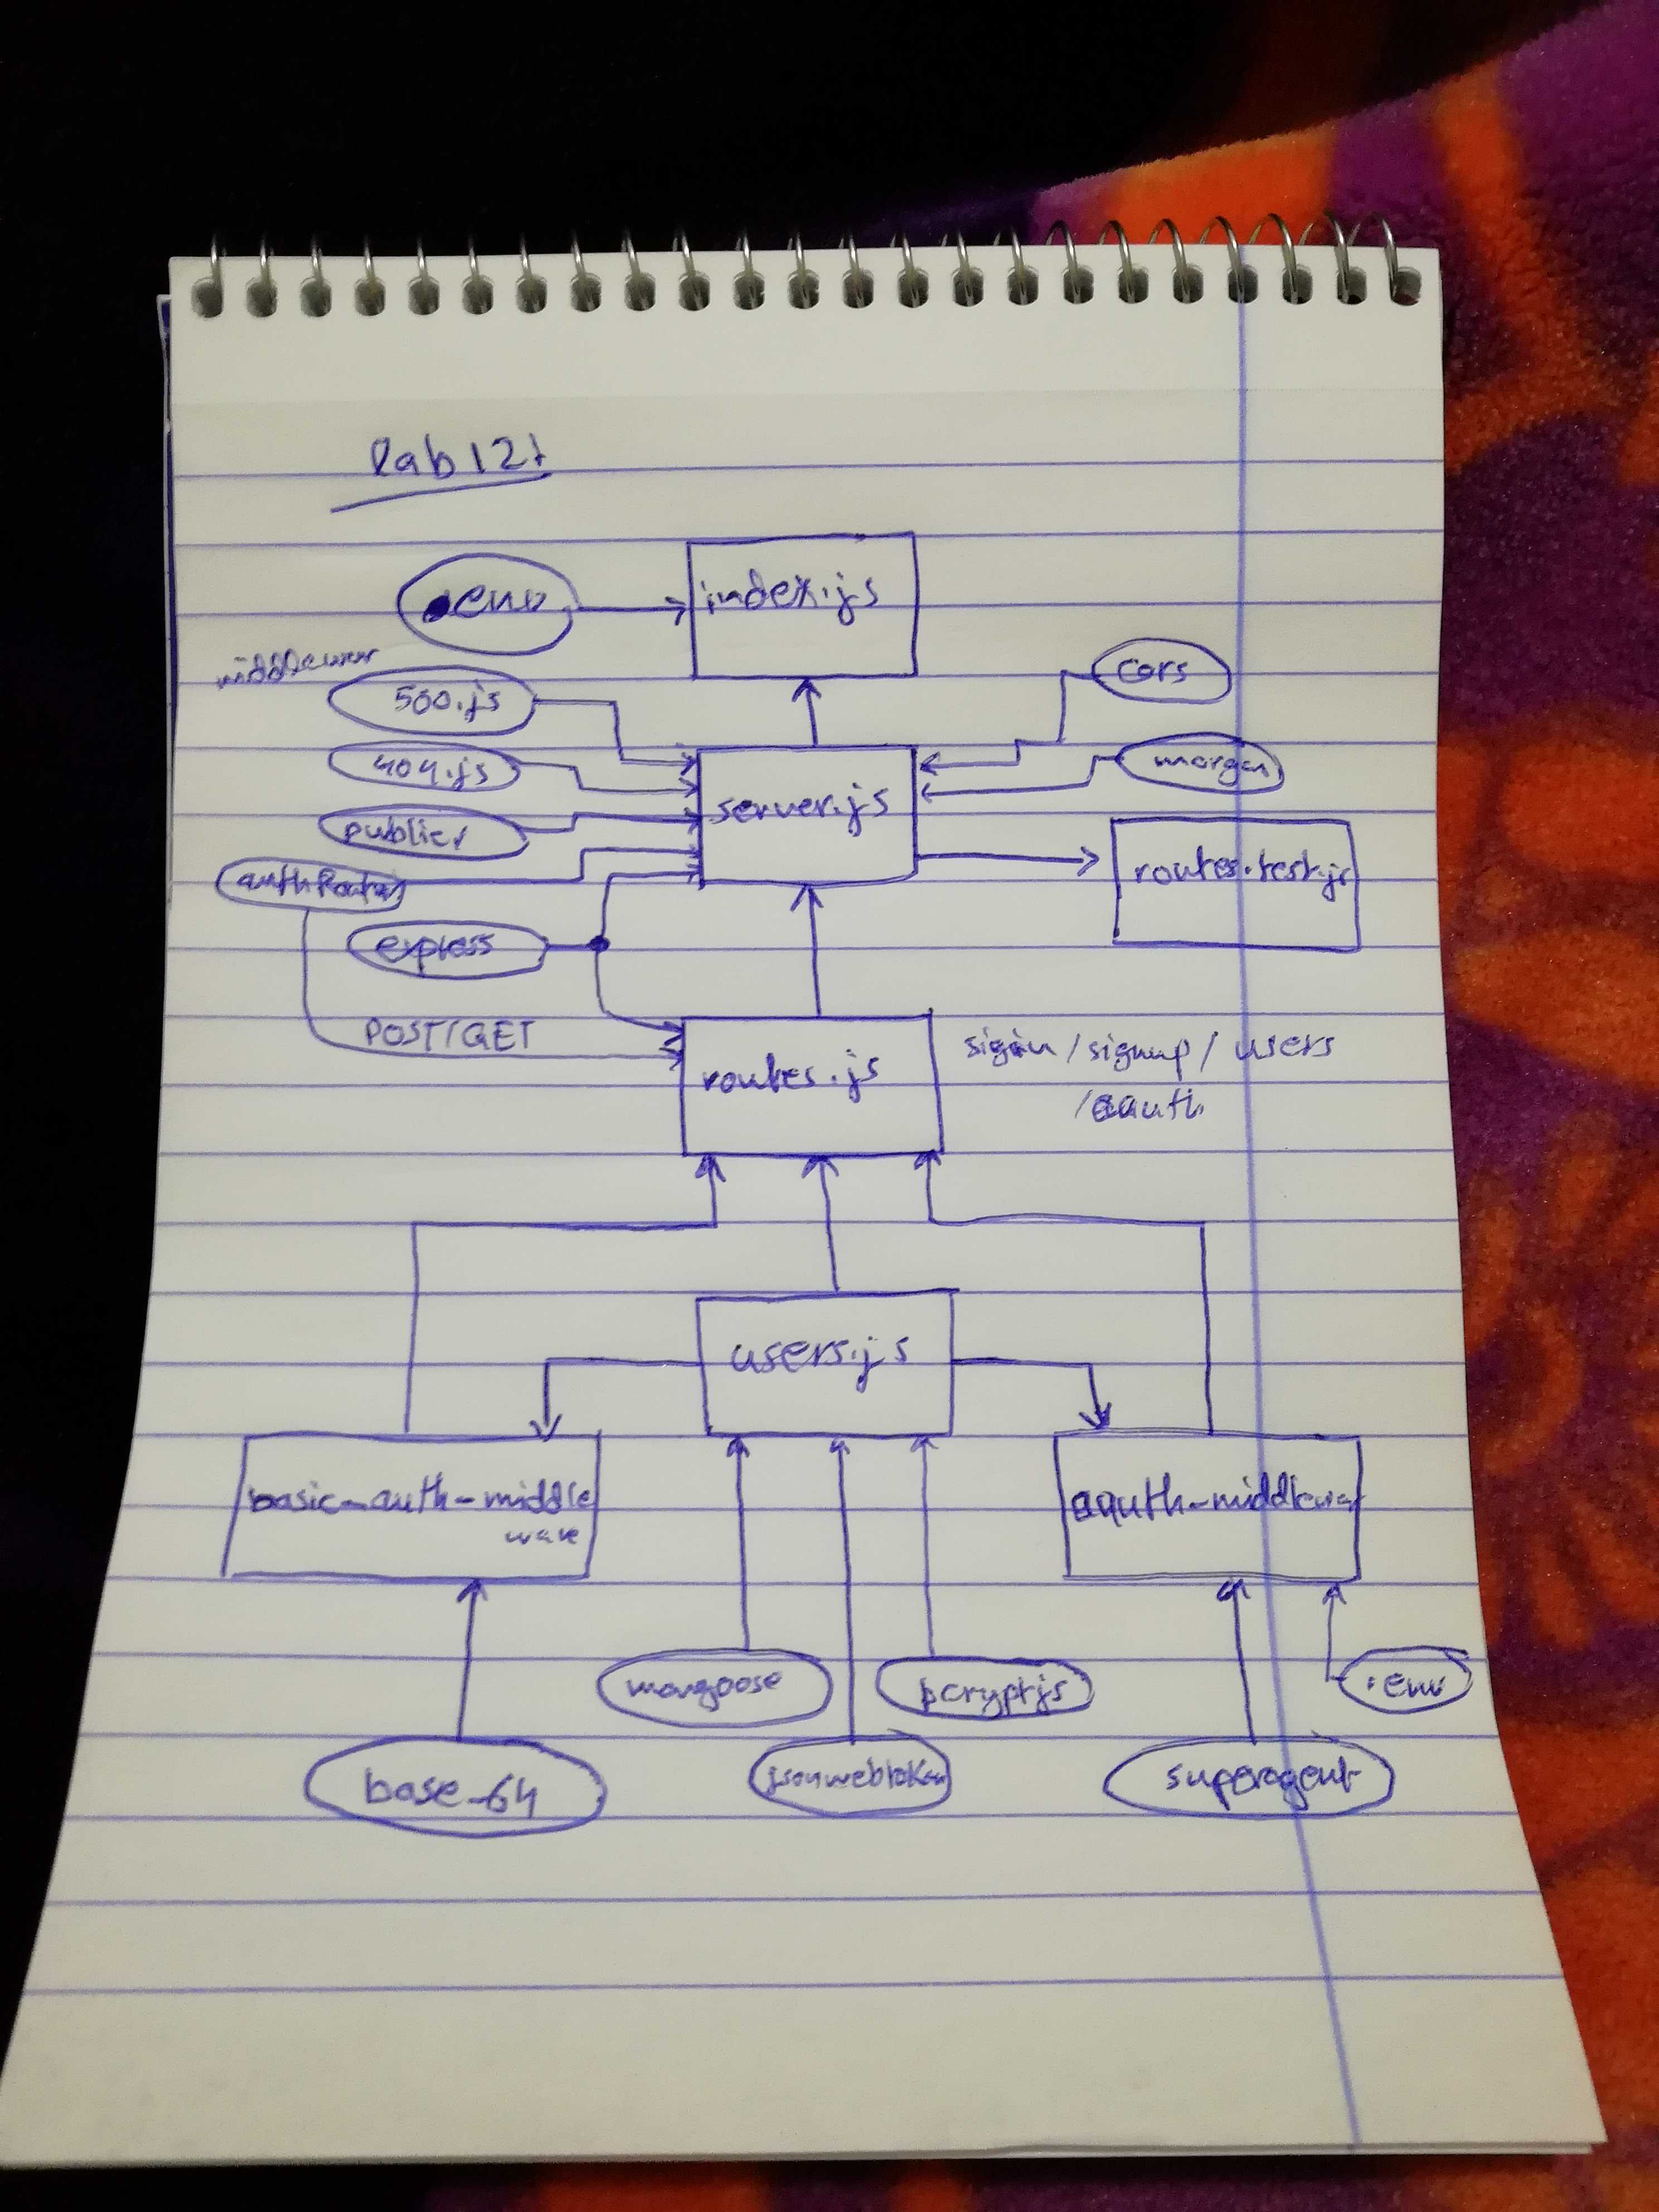 lab 12:
.env
index.js
middlewear
500.js
cors
404.js
morgan
server.js
publicr
routes.test.js
authRouter
express
POST/GET
routes.js
sigin / signup / users
/oauth
users.js
basic-auth-middle
ware
oauth-middlewar
mongoose
pcryptjs
.env
base-64
jsonwebtoken
superagent